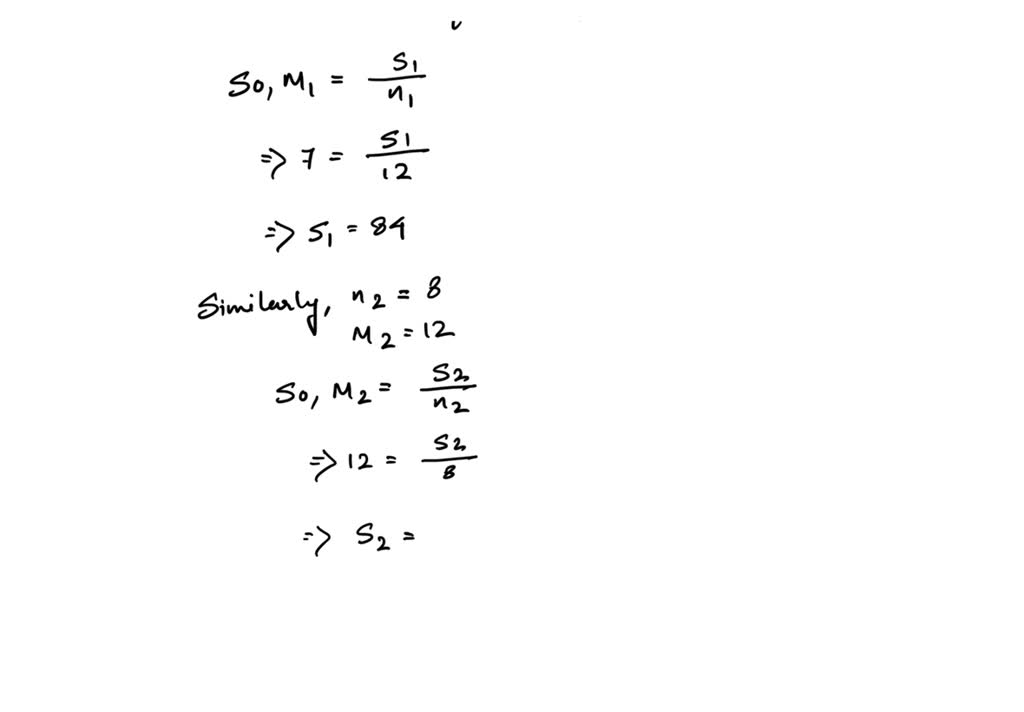 So, M₁ = S₁/n₁
=> 7 = S1/12
=> S₁ = 84
Similarly, n₂ = 8
M₂ = 12
So, M₂ = S₂/n₂
=> 12 = S₂/8
=> S₂ =